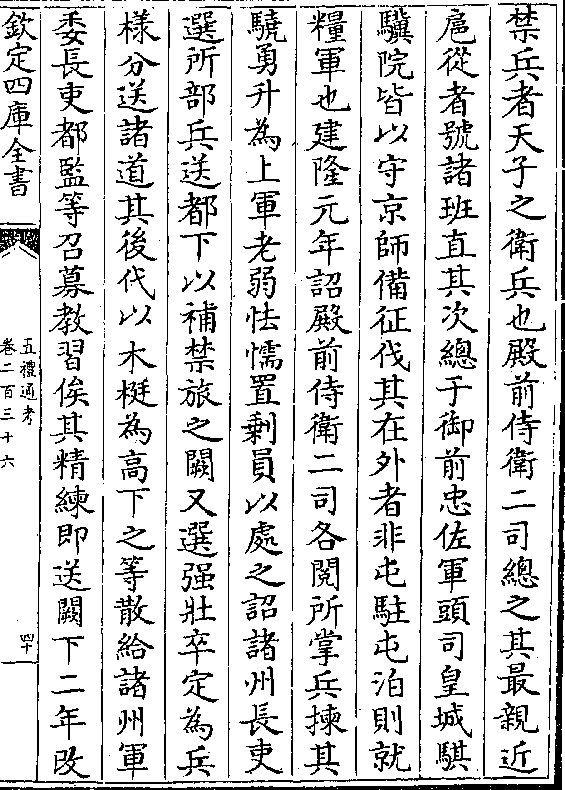 禁兵者天子之衛兵也殿前侍衛二司總之其最親近
扈從者號諸班直其次總于御前忠佐軍頭司皇城騏
驥院皆以守京師備征伐其在外者非屯駐屯泊則就
糧軍也建隆元年詔殿前侍衛二司各閱所掌兵揀其
驍勇升為上軍老弱怯懦置剩員以處之詔諸州長吏
選所部兵送都下以補禁旅之闕又選强壯卒定為兵
様分送諸道其後代以木梃為高下之等散給諸州軍
委長吏都監等召募教習俟其精練即送闕下二年改
欽定四庫全書
五禮通考
卷二百三十六
四十